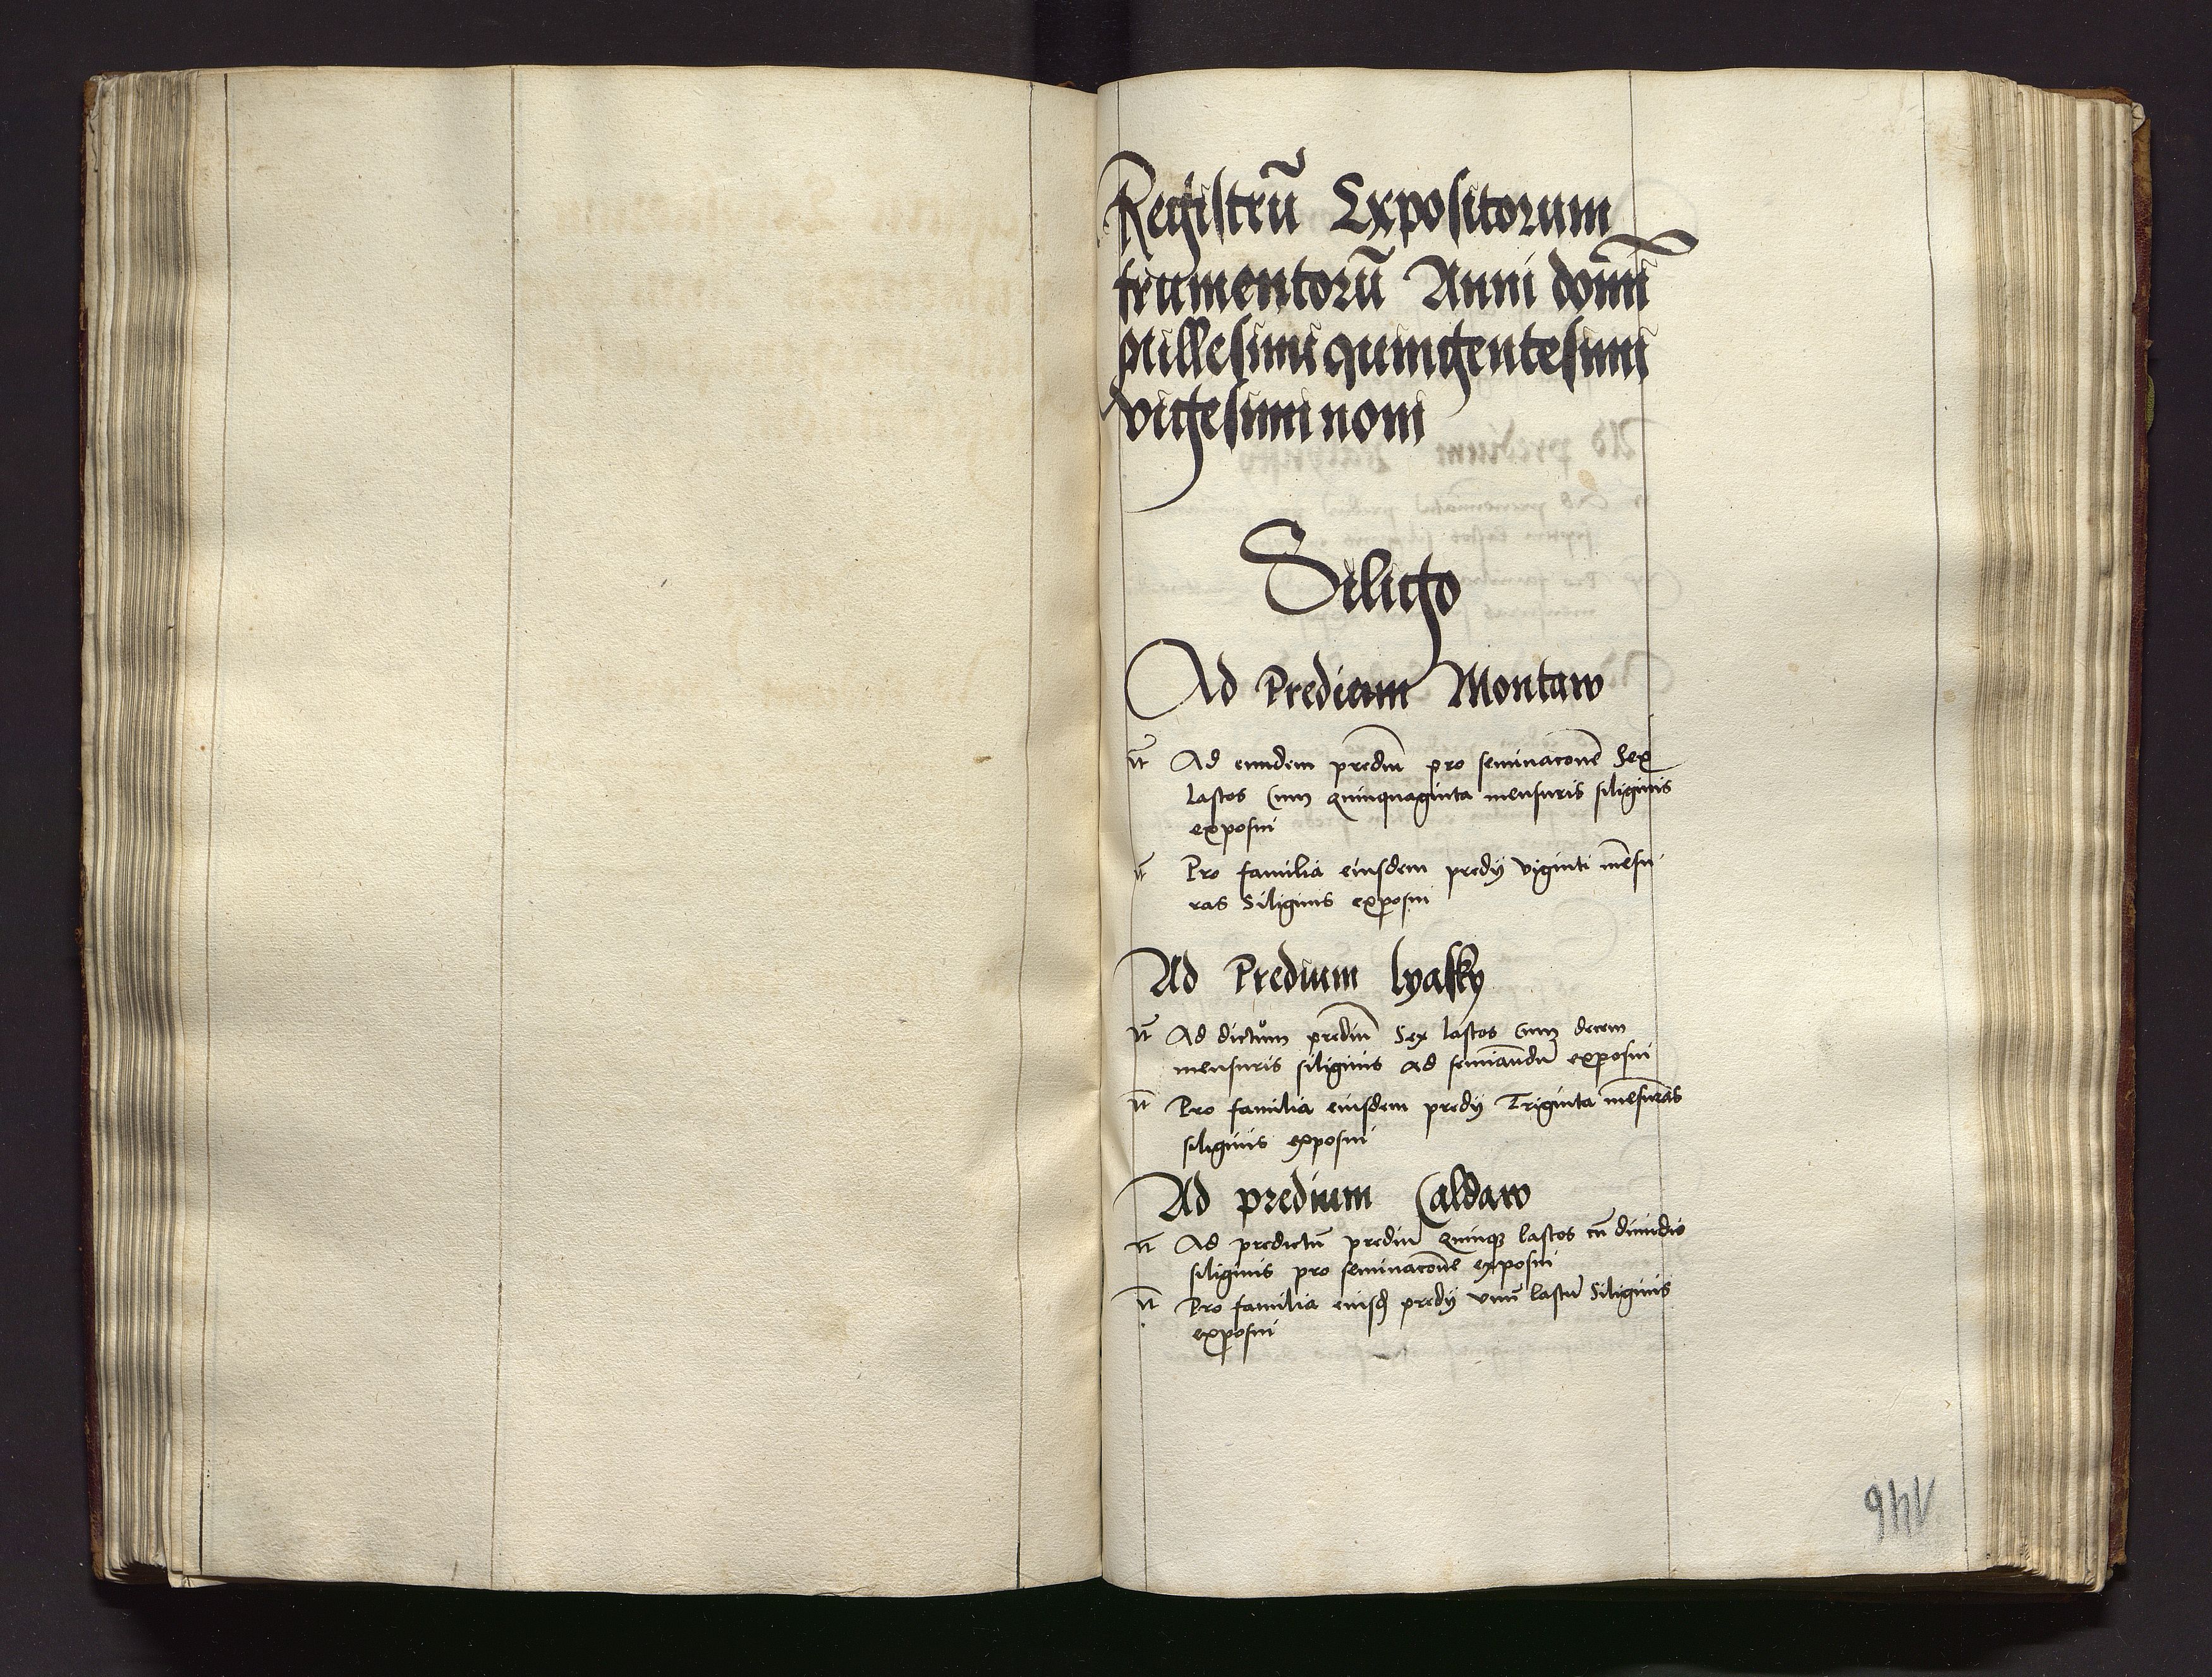 Registrū Expositorum
frumentorū Anni domī
Millesimi quingentesimi
vigesimi noni
Siligo
Ad Predium Montaw
It̄ Ad eundem prediū pro seminacōne Sex
lastos Cum quinquaginta mensuris siliginis
exposui
It̄ Pro familia eiusdem predij viginti mēsu
ras Siliginis exposui
Ad Predium lyasky
It̄ Ad dictum prediū Sex lastos Cum decem
mensuris siliginis ad seminandū exposui
It̄ Pro familia eiusdem predij Triginta mēsuras
siliginis exposui
Ad predium Caldaw
It̄ Ad predictū prediū quinqꝫ lastos cū dimidio
siliginis pro seminacōne exposui
It̄ Pro familia eiusd predij vnū lastū Siliginis
exposui